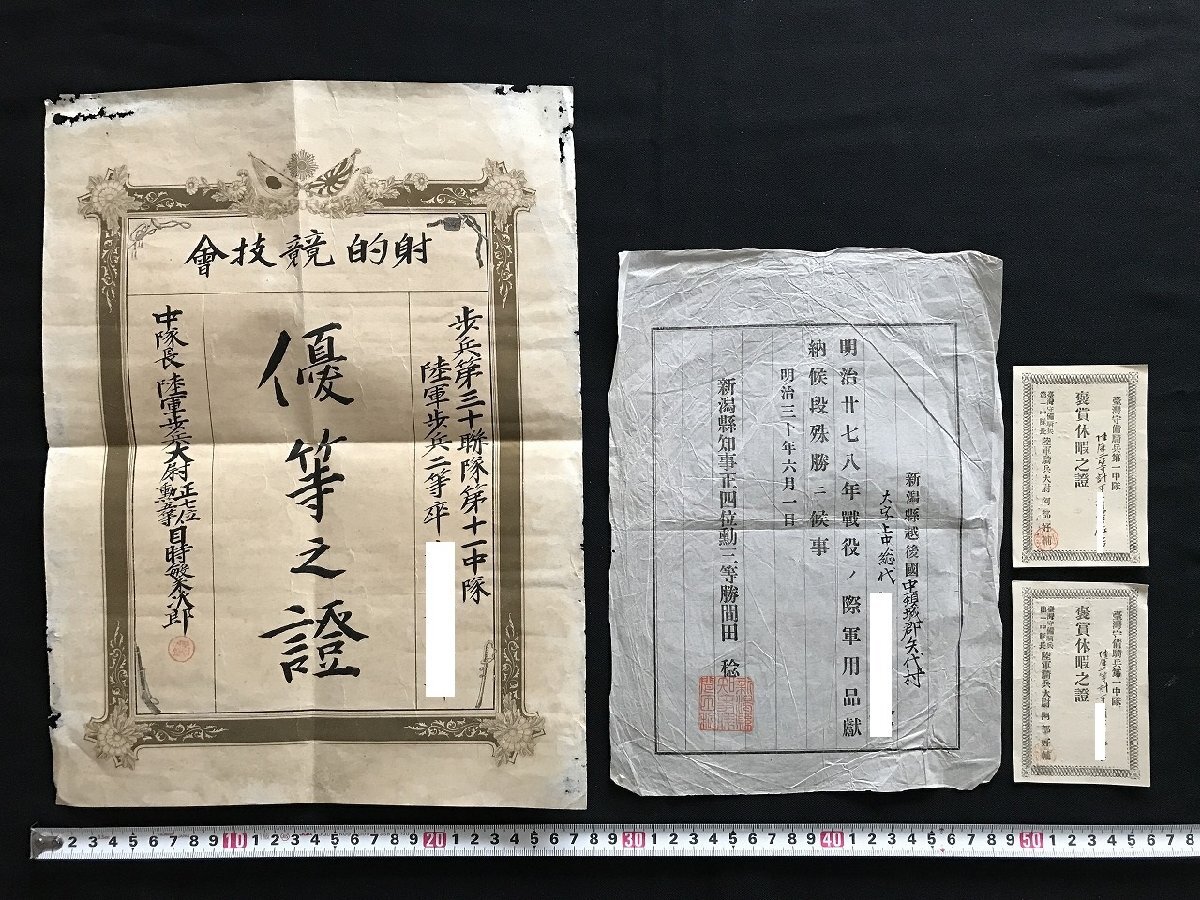 射的競技會
歩兵第三十聯隊第十一中隊
陸軍歩兵二等卒
優等之證
中隊長 陸軍歩兵大尉 正七位 勲五等 目時繁次郎
新潟縣越後國中頸城郡矢代村
大字 総代
明治廿七八年戰役ノ際軍用品獻
納候段殊勝ニ候事
明治三十年六月一日
新潟縣知事正四位勳三等勝間田 稔
臺灣守備騎兵第一中隊
褒賞休暇之證
臺灣守備騎兵
第一中隊長 陸軍騎兵大尉 阿部好輔
臺灣守備騎兵第一中隊
褒賞休暇之證
臺灣守備騎兵
第一中隊長 陸軍騎兵大尉 阿部好輔
1 2 3 4 5 6 7 8 9 10 1 2 3 4 5 6 7 8 9 20 1 2 3 4 5 6 7 8 9 30 1 2 3 4 5 6 7 8 9 40 1 2 3 4 5 6 7 8 9 50 1 2 3 4 5 6 7 8